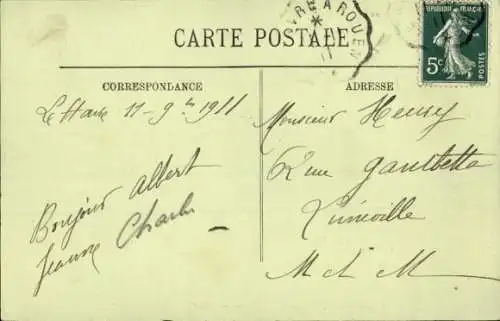 VRE A ROUEN
CARTE POSTALE
REPUBLIQUE FRANÇAISE
5c
POSTES
CORRESPONDANCE
Le Havre 11-9bre 1911
Bonjour Albert
Jeanne Charles
ADRESSE
Monsieur Henry
62 rue gambetta
Lunéville
M et M